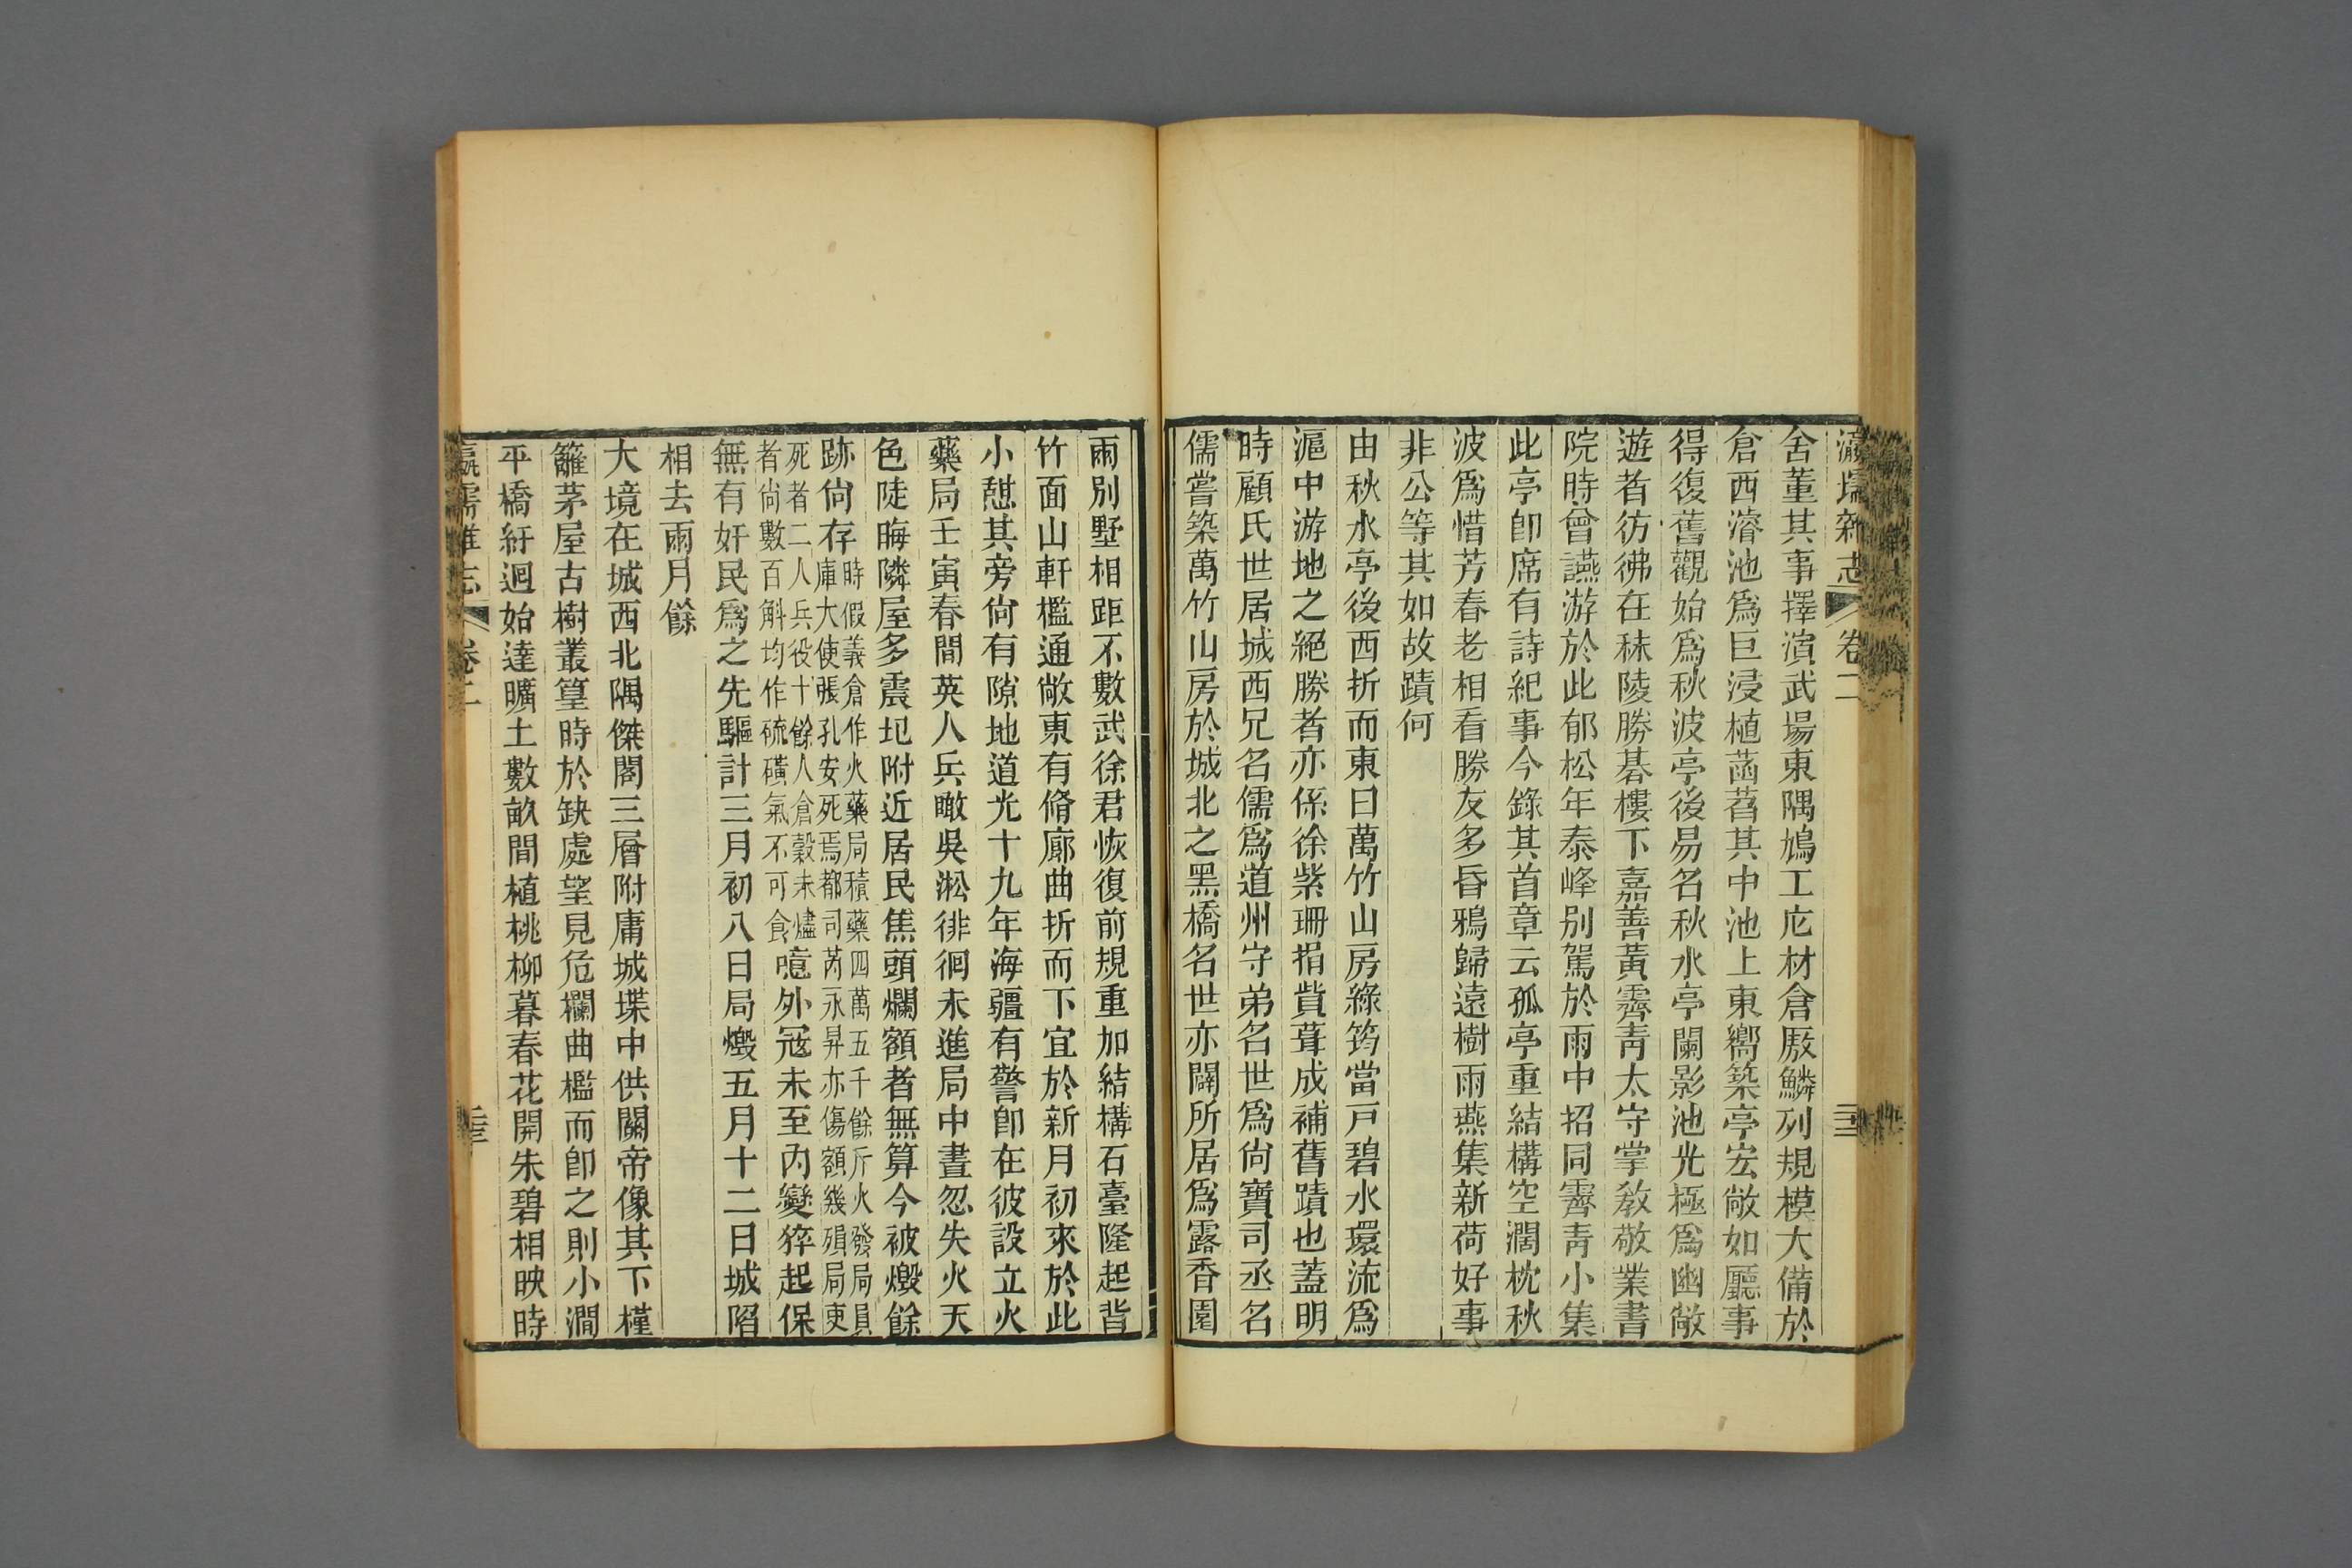 瀛壖雜志 卷二
舍董其事擇演武場東隅鳩工庀材倉厫鱗列規模大備於
倉西濬池爲巨浸植菡萏其中池上東嚮築亭宏敞如廳事
得復舊觀始爲秋波亭後易名秋水亭闌影池光極爲幽敞
遊者彷彿在秣陵勝碁樓下嘉善黃霽靑太守掌敎敬業書
院時曾讌游於此郁松年泰峰別駕於雨中招同霽靑小集
此亭卽席有詩紀事今錄其首章云孤亭重結構空濶枕秋
波爲惜芳春老相看勝友多昏鴉歸遠樹雨燕集新荷好事
非公等其如故蹟何
由秋水亭後西折而東曰萬竹山房綠筠當戸碧水環流爲
滬中游地之絕勝者亦係徐紫珊捐貲葺成補舊蹟也蓋明
時顧氏世居城西兄名儒爲道州守弟名世爲尙寶司丞名
儒嘗築萬竹山房於城北之黑橋名世亦闢所居爲露香園
兩別墅相距不數武徐君恢復前規重加結構石臺隆起背
竹面山軒檻通敞東有脩廊曲折而下宜於新月初來於此
小憇其旁尙有隙地道光十九年海疆有警卽在彼設立火
藥局壬寅春間英人兵瞰吳淞徘徊未進局中晝忽失火天
色陡晦隣屋多震圯附近居民焦頭爛額者無算今被燬餘
跡尙存時假義倉作火藥局積藥四萬五千餘斤火發局員
庫大使張孔安死焉都司芮永昇亦傷額幾殞局吏
死者二人兵役十餘人倉穀未燼
者尙數百斛均作硫磺氣不可食噫外冦未至內變猝起保
無有奸民爲之先驅計三月初八日局燬五月十二日城陷
相去兩月餘
大境在城西北隅傑閣三層附庸城堞中供關帝像其下槿
籬茅屋古樹叢篁時於缺處望見危欄曲檻而卽之則小澗
平橋紆迴始達曠土數畝間植桃柳暮春花開朱碧相映時
瀛壖雜志 卷二